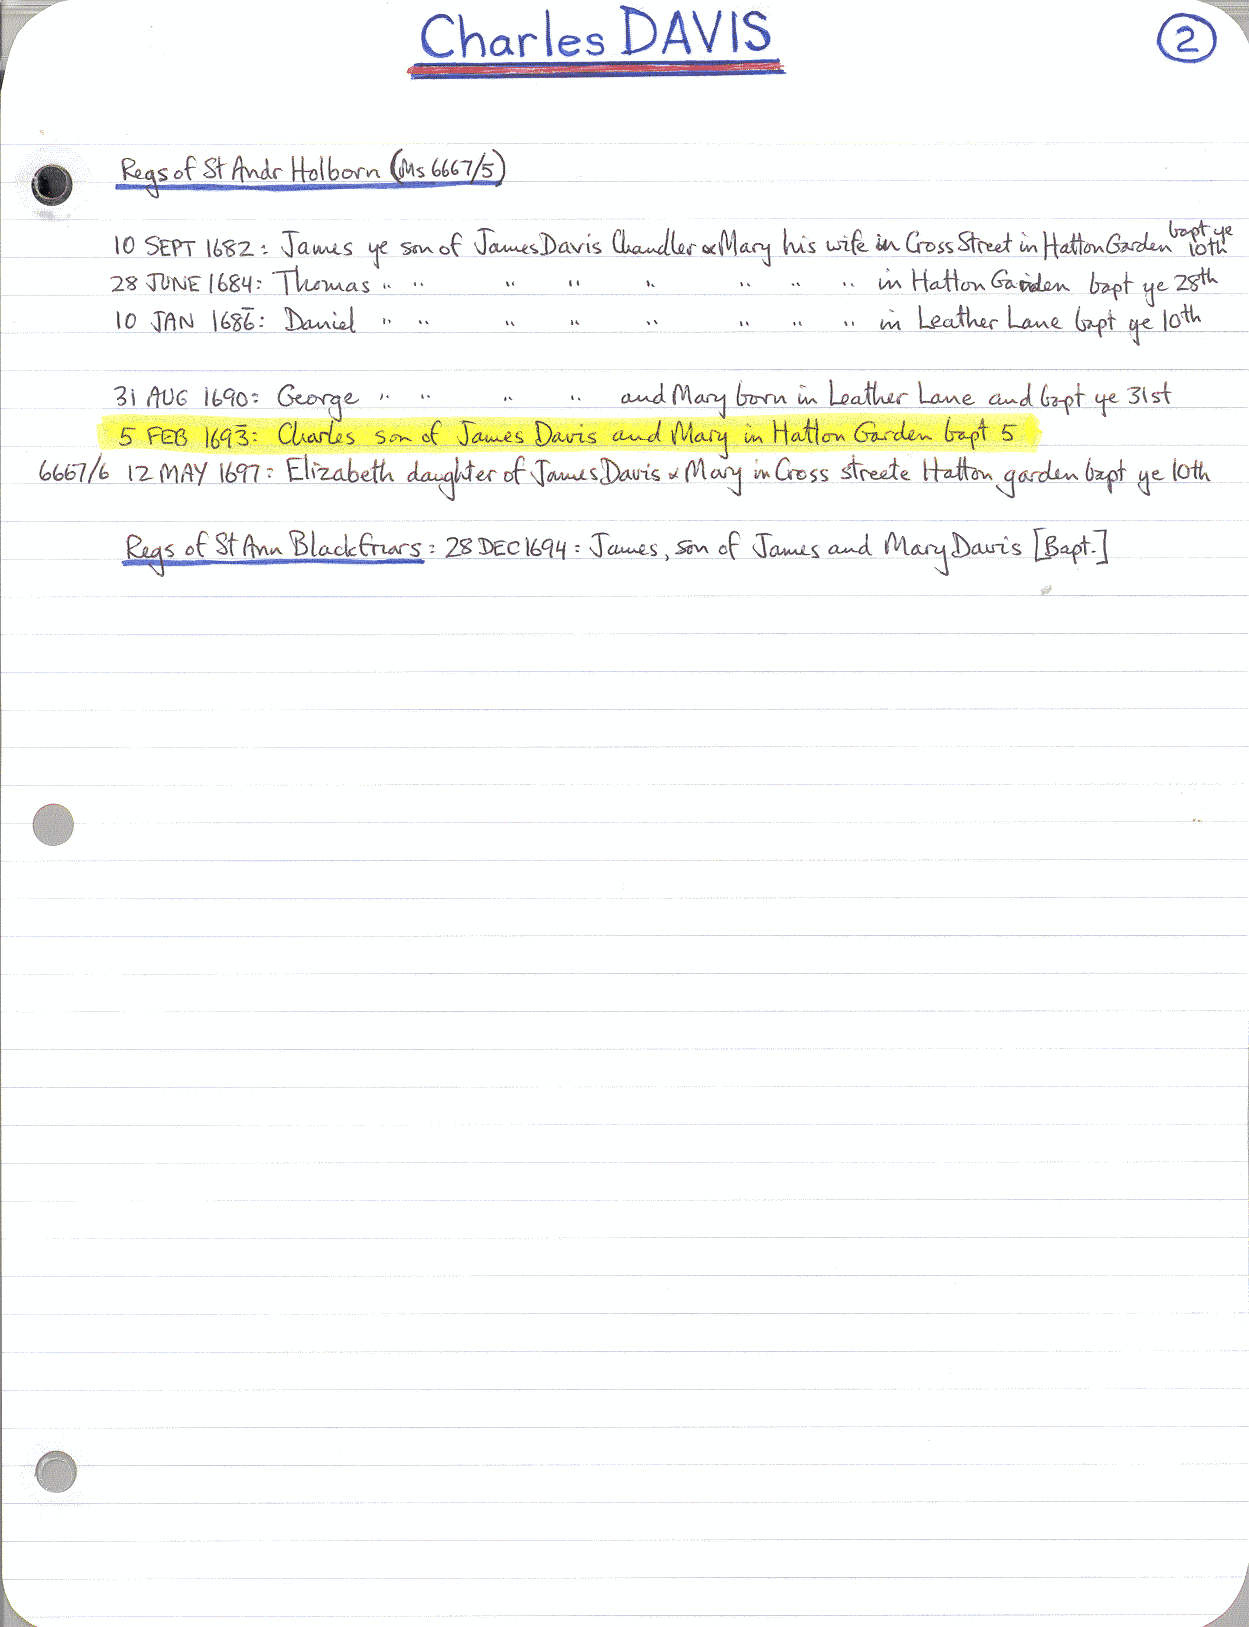 Charles DAVIS
2
Regs of St Andr Holborn (Ms 6667/5)
10 SEPT 1682: James ye son of James Davis Chandler & Mary his wife in Cross Street in Hatton Garden bapt ye 10th
28 JUNE 1684: Thomas " " " " " " " " in Hatton Garden bapt ye 28th
10 JAN 1686̅: Daniel " " " " " " " " in Leather Lane bapt ye 10th
31 AUG 1690: George " " " " and Mary born in Leather Lane and bapt ye 31st
5 FEB 1693̅: Charles son of James Davis and Mary in Hatton Garden bapt 5
6667/6 12 MAY 1697: Elizabeth daughter of James Davis & Mary in Cross streete Hatton garden bapt ye 10th
Regs of St Ann Blackfriars: 28 DEC 1694: James, son of James and Mary Davis [Bapt.]